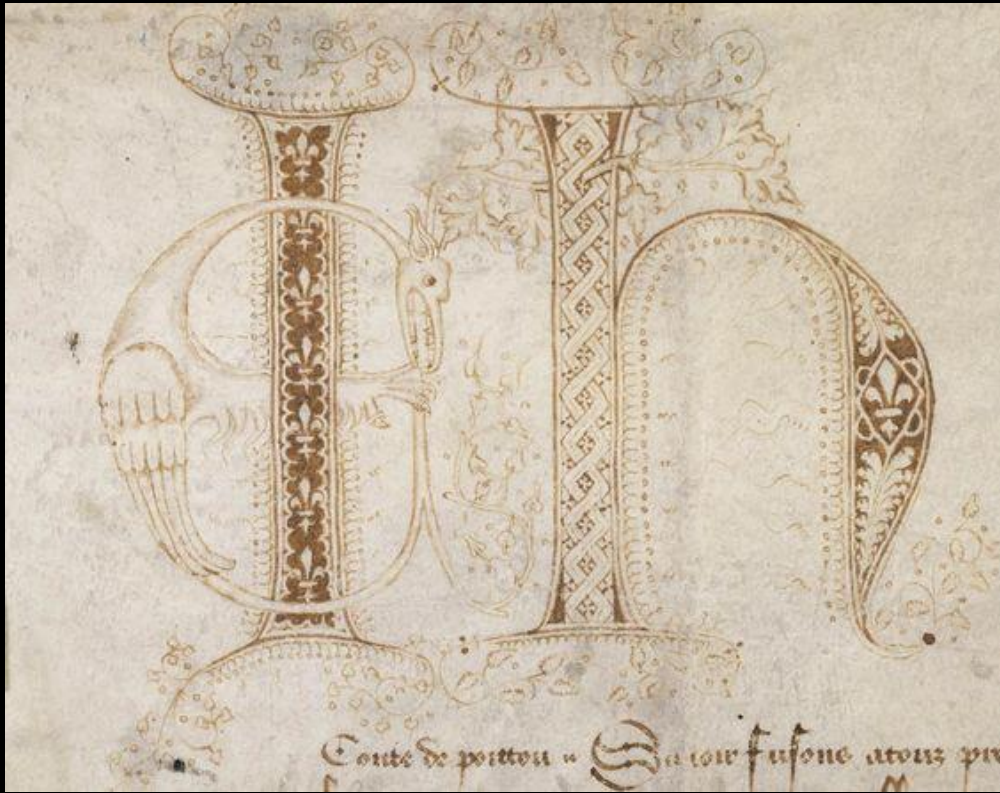 Jeh
Conte de poittou Sauoir fusons atouz pre